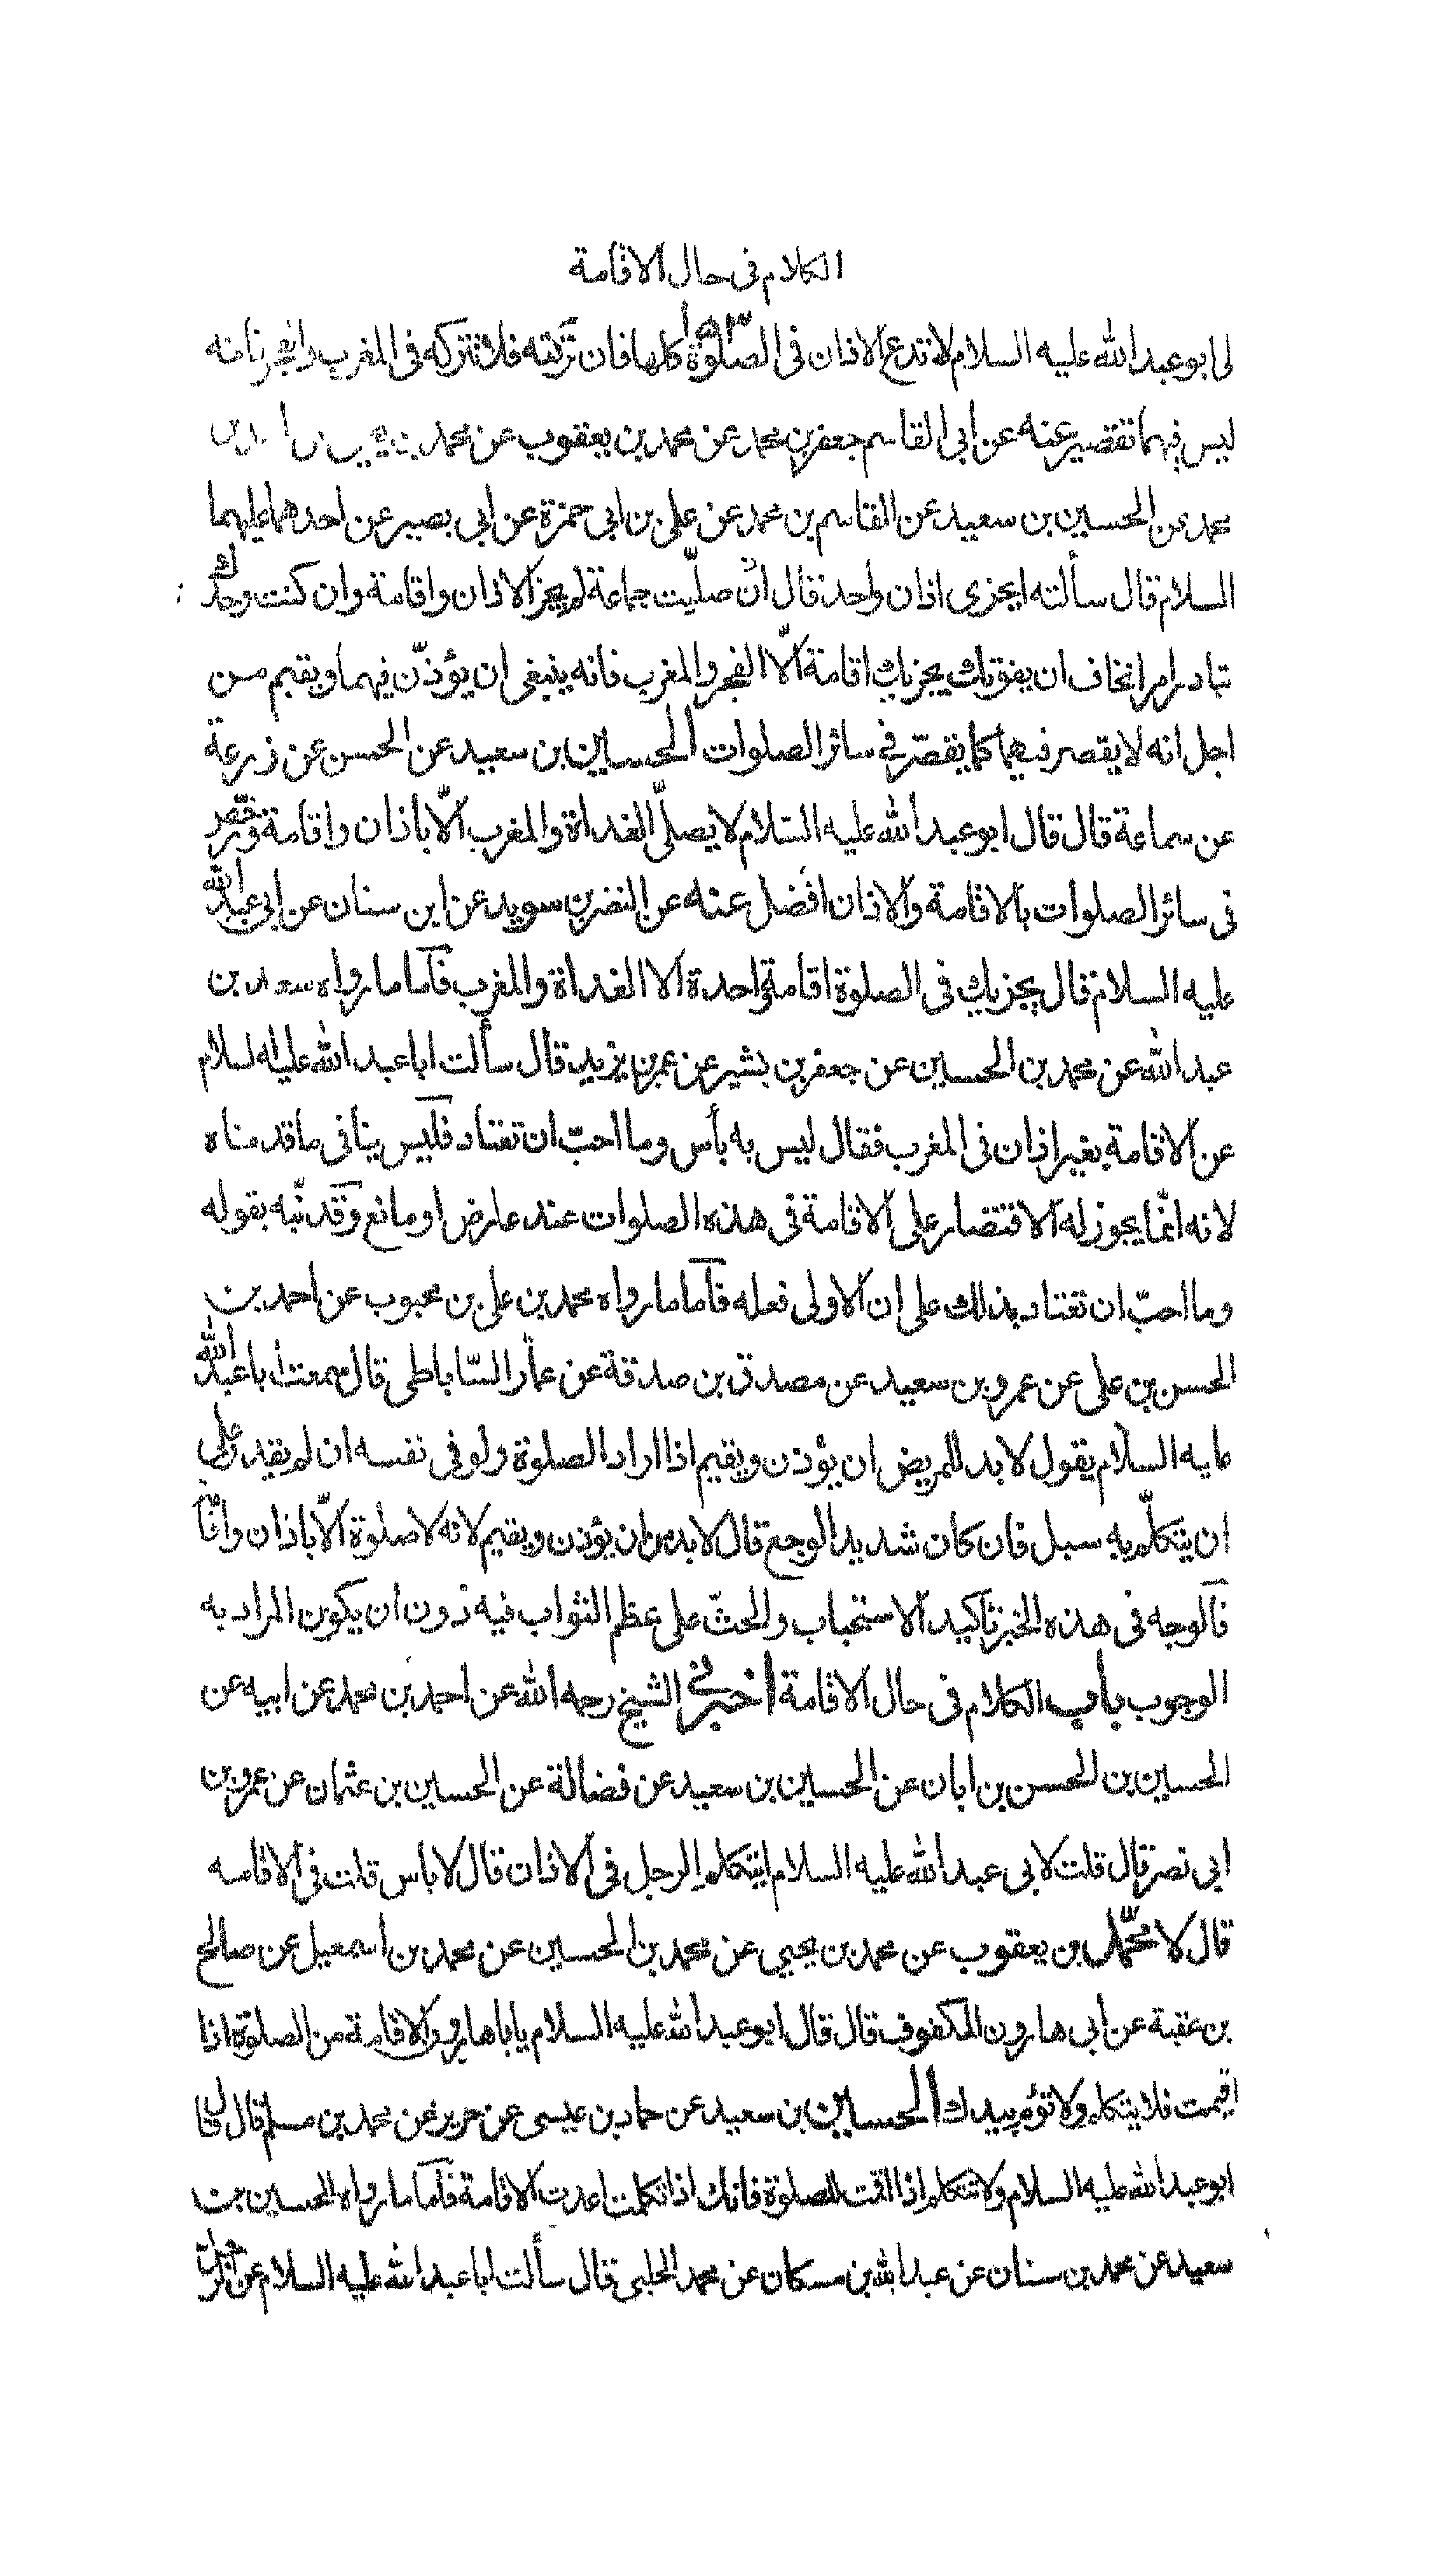 الكلام فى حال الاقامة
١٥٣
لى ابو عبد الله عليه السلام لا تدع الاذان فى الصلوة كلها فان تركته فلا تتركه فى المغرب والفجر فانه
ليس فيهما تقصير عنه عن ابى القاسم جعفر بن محمد عن محمد بن يعقوب عن محمد بن
محمد عن الحسين بن سعيد عن القاسم بن محمد عن على بن ابى حمزة عن ابى بصير عن احدهما عليهما
السلام قال سألته ايجزى اذان واحد قال ان صليت جماعة لم يجز الا اذان واقامة وان كنت وحدك
تبادر امرا تخاف ان يفوتك يجزيك اقامة الّا الفجر والمغرب فانه ينبغى ان يؤذّن فيهما ويقيم من
اجل انه لا يقصر فيهما كما يقصّر فى سائر الصلوات الحسين بن سعيد عن الحسن عن زرعة
عن سماعة قال قال ابو عبد الله عليه السّلام لا يصلّى الغداة والمغرب الّا باذان واقامة ورخّص
فى سائر الصلوات بالاقامة والاذان افضل عنه عن النضر بن سويد عن ابن سنان عن ابى عبد الله
عليه السلام قال يجزيك فى الصلوة اقامة واحدة الا الغداة والمغرب فاما ما رواه سعد بن
عبد الله عن محمد بن الحسين عن جعفر بن بشير عن عمر بن يزيد قال سألت ابا عبد الله عليه السلام
عن الاقامة بغير اذان فى المغرب فقال ليس به بأس وما احبّ ان تعتاد فليس ينافى ما قدمناه
لانه انّما يجوز له الاقتضار على الاقامة فى هذه الصلوات عند عارض او مانع وقد نبّه بقوله
وما احبّ ان تعتاد بذلك على ان الاولى فعله فاما ما رواه محمد بن على بن محبوب عن احمد بن
الحسن بن على عن عمرو بن سعيد عن مصدق بن صدقة عن عمّار السّاباطى قال سمعت ابا عبد الله
عليه السلام يقول لا بد للمريض ان يؤذن ويقيم اذا اراد الصلوة ولو فى نفسه ان لم يقدر على
ان يتكلّم به سبل فان كان شديد الوجع قال لا بد من ان يؤذن ويقيم لانه لا صلوة الّا باذان واقامة
فالوجه فى هذه الخبر تاكيد الاستحباب والحثّ على عظم الثواب فيه دون ان يكون المراد به
الوجوب باب الكلام فى حال الاقامة اخبرنى الشيخ رحمه الله عن احمد بن محمد عن ابيه عن
الحسين بن الحسن بن ابان عن الحسين بن سعيد عن فضالة عن الحسين بن عثمان عن عمرو بن
ابى نصر قال قلت لابى عبد الله عليه السلام ايتكلم الرجل فى الاذان قال لا باس قلت فى الاقامه
قال لا محمّد بن يعقوب عن محمد بن يحيى عن محمد بن الحسين عن محمد بن اسمعيل عن صالح
بن عقبة عن ابى هارون المكفوف قال قال ابو عبد الله عليه السلام يابا هارون الاقامة من الصلوة اذا
اقيمت فلا يتكلم ولا تؤم بيدك الحسين بن سعيد عن حماد بن عيسى عن حريز عن محمد بن مسلم قال قال
ابو عبد الله عليه السلام ولا تتكلم اذا اقمت الصلوة فانك اذا تكلمت اعدت الاقامة فاما ما رواه الحسين بن
سعيد عن محمد بن سنان عن عبد الله بن مسكان عن محمد الحلبى قال سألت ابا عبد الله عليه السلام عن الرجل